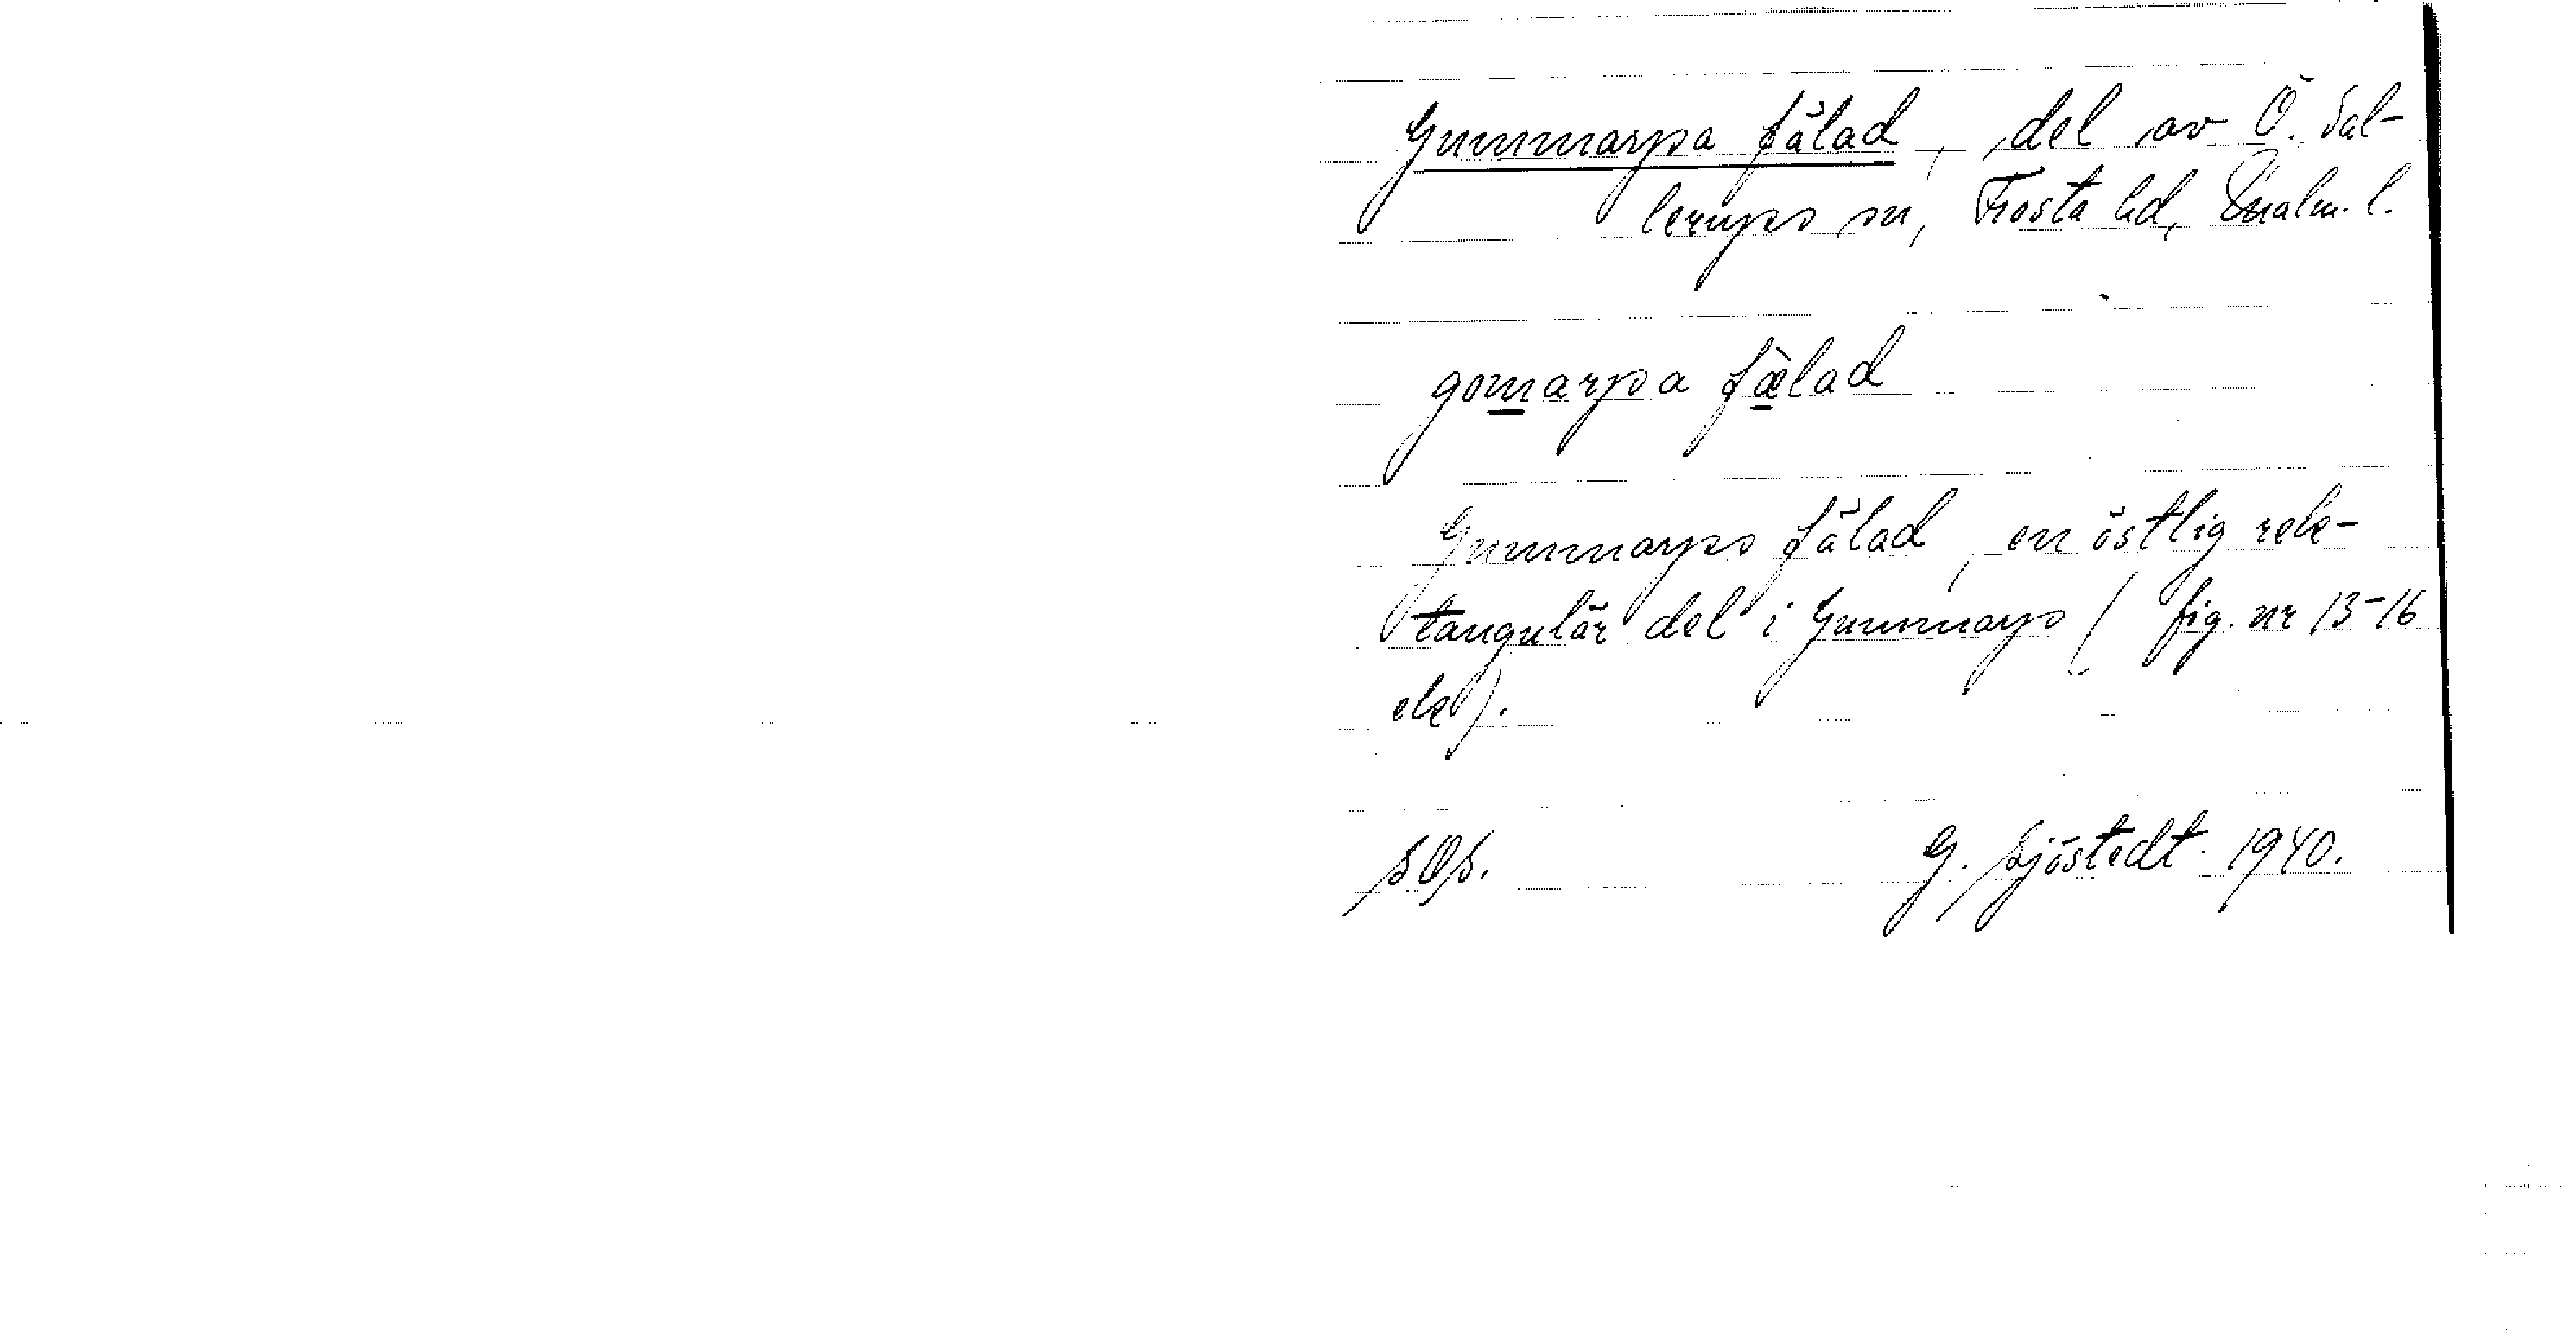 Gummarpa fälad, del av Ö. Sal-
lerups sn, Frosta hd, Malm. l.
gomarpa fælad
Gummarps fälad, en östlig rek-
tangulär del i Gummarp (fig. nr 13-16
ek).
G. Sjöstedt 1940.